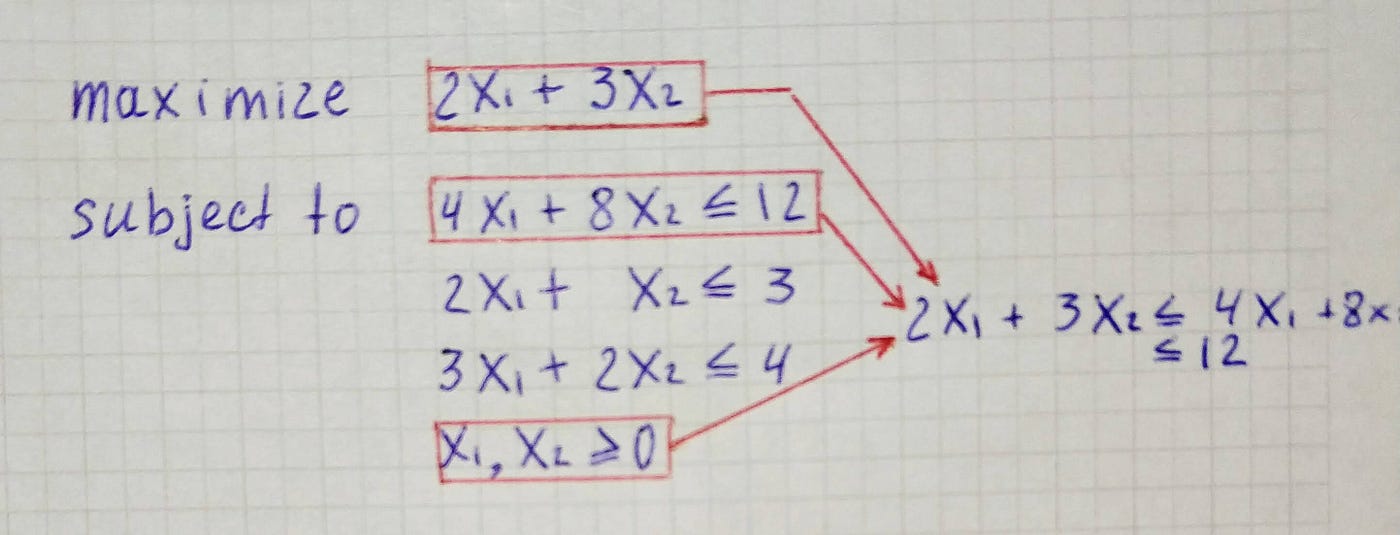 maximize 2x₁ + 3x₂
subject to 4x₁ + 8x₂ ≤ 12
2x₁ + x₂ ≤ 3
3x₁ + 2x₂ ≤ 4
x₁, x₂ ≥ 0
2x₁ + 3x₂ ≤ 4x₁ + 8x
≤ 12